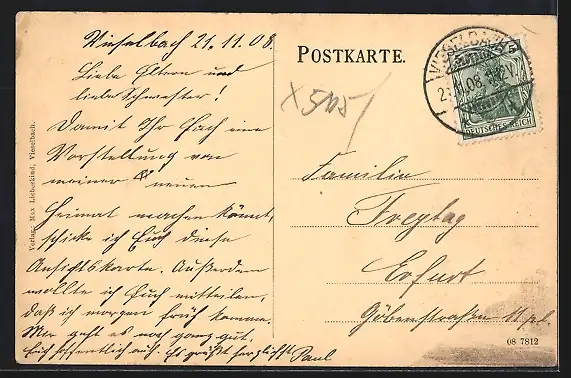 Vieselbach 21.11.08.
Liebe Eltern und
liebe Schwester!
Damit Ihr Euch eine
Vorstellung von
meiner neuen
Heimat machen könnt,
schicke ich Euch diese
Ansichtskarte. Außerdem
wollte ich Euch mitteilen,
daß ich morgen früh komme.
Mir geht es noch ganz gut,
Euch hoffentlich auch. Es grüßt herzlichst Paul
Verlag: Max Liebeskind, Vieselbach.
POSTKARTE.
x 515
VIESELBACH
DEUTSCHES REICH
Familie
Freytag
Erfurt
Göbenstraße 11 pl.
08 7812